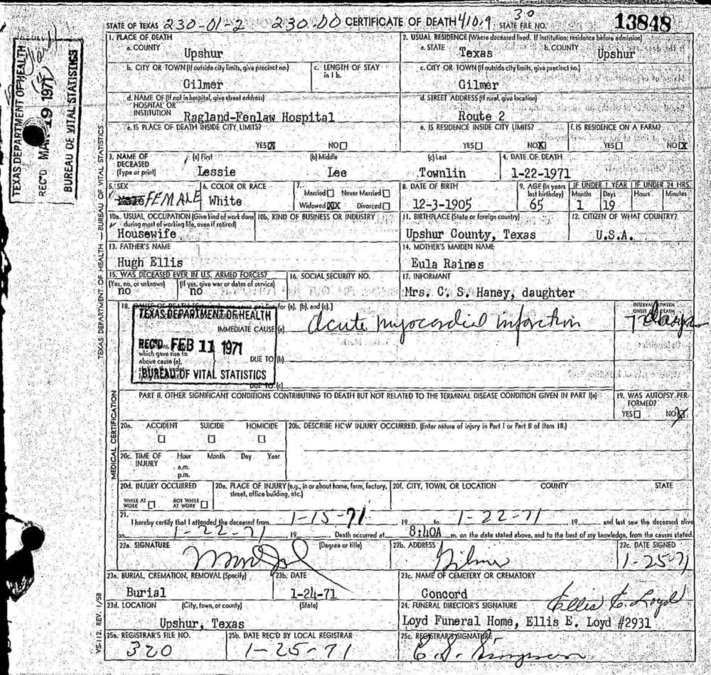 STATE OF TEXAS 230-01-2 230.00 CERTIFICATE OF DEATH 410.9 STATE FILE NO. 30 13848
TEXAS DEPARTMENT OF HEALTH
REC'D MAR 29 1971
BUREAU OF VITAL STATISTICS
TEXAS DEPARTMENT OF HEALTH — BUREAU OF VITAL STATISTICS
1. PLACE OF DEATH
a. COUNTY
Upshur
2. USUAL RESIDENCE (Where deceased lived. If institution: residence before admission)
a. STATE Texas
b. COUNTY Upshur
b. CITY OR TOWN (If outside city limits, give precinct no.)
Gilmer
c. LENGTH OF STAY in 1 b.
c. CITY OR TOWN (If outside city limits, give precinct no.)
Gilmer
d. NAME OF (If not in hospital, give street address)
HOSPITAL OR
INSTITUTION Ragland-Fenlaw Hospital
d. STREET ADDRESS (If rural, give location)
Route 2
e. IS PLACE OF DEATH INSIDE CITY LIMITS?
YES☒ NO☐
e. IS RESIDENCE INSIDE CITY LIMITS?
YES☐ NO☒
f. IS RESIDENCE ON A FARM?
YES☐ NO☒
3. NAME OF DECEASED (Type or print)
(a) First (b) Middle (c) Last
Lessie Lee Townlin
4. DATE OF DEATH
1-22-1971
5. SEX
FEMALE
6. COLOR OR RACE
White
7.
Married☐ Never Married☐
Widowed☒ Divorced☐
8. DATE OF BIRTH
12-3-1905
9. AGE (In years last birthday)
65
IF UNDER 1 YEAR
Months Days
1 19
IF UNDER 24 HRS.
Hours Minutes
10a. USUAL OCCUPATION (Give kind of work done during most of working life, even if retired)
Housewife
10b. KIND OF BUSINESS OR INDUSTRY
11. BIRTHPLACE (State or foreign country)
Upshur County, Texas
12. CITIZEN OF WHAT COUNTRY?
U.S.A.
13. FATHER'S NAME
Hugh Ellis
14. MOTHER'S MAIDEN NAME
Eula Raines
15. WAS DECEASED EVER IN U.S. ARMED FORCES?
(Yes, no, or unknown) (If yes, give war or dates of service)
no no
16. SOCIAL SECURITY NO.
17. INFORMANT
Mrs. C. S. Haney, daughter
MEDICAL CERTIFICATION
18. for (a), (b), and (c).]
TEXAS DEPARTMENT OF HEALTH
REC'D FEB 11 1971
BUREAU OF VITAL STATISTICS
IMMEDIATE CAUSE (a) Acute myocardial infarction
INTERVAL BETWEEN ONSET AND DEATH
7 days
which gave rise to
above cause (a),
DUE TO (b)
DUE TO (c)
PART II. OTHER SIGNIFICANT CONDITIONS CONTRIBUTING TO DEATH BUT NOT RELATED TO THE TERMINAL DISEASE CONDITION GIVEN IN PART I(a)
19. WAS AUTOPSY PERFORMED?
YES☐ NO☒
20a. ACCIDENT SUICIDE HOMICIDE
☐ ☐ ☐
20b. DESCRIBE HOW INJURY OCCURRED. (Enter nature of injury in Part I or Part II of item 18.)
20c. TIME OF INJURY Hour Month Day Year
a.m.
p.m.
20d. INJURY OCCURRED
WHILE AT WORK ☐ NOT WHILE AT WORK ☐
20e. PLACE OF INJURY (e.g., in or about home, farm, factory, street, office building, etc.)
20f. CITY, TOWN, OR LOCATION COUNTY STATE
21.
I hereby certify that I attended the deceased from 1-15-71 19 to 1-22-71 19 and last saw the deceased alive
on 1-22-71 19 Death occurred at 8:40A m. on the date stated above, and to the best of my knowledge, from the causes stated.
22a. SIGNATURE (Degree or title)
22b. ADDRESS
Gilmer
22c. DATE SIGNED
1-25-71
23a. BURIAL, CREMATION, REMOVAL (Specify)
Burial
23b. DATE
1-24-71
23c. NAME OF CEMETERY OR CREMATORY
Concord
23d. LOCATION (City, town, or county) (State)
Upshur, Texas
24. FUNERAL DIRECTOR'S SIGNATURE
Ellis E. Loyd
Loyd Funeral Home, Ellis E. Loyd #2931
25a. REGISTRAR'S FILE NO.
320
25b. DATE REC'D BY LOCAL REGISTRAR
1-25-71
25c. REGISTRAR'S SIGNATURE
VS-112 REV. 1/58